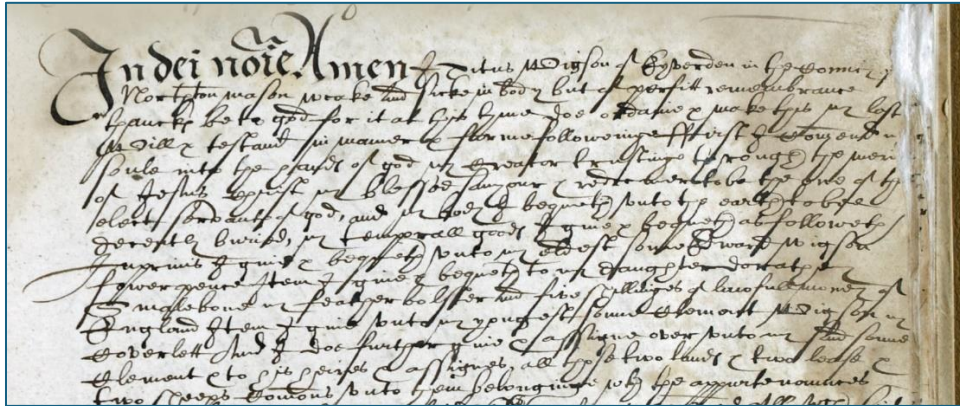 In dei no{m}i{n}e Amen I Titus Wigson of Eyerden in the Countie of
Northton mason weake and sicke in body but of perfitt remembrance
thanckes be to god for it at this tyme doe ordaine & make this my last
Will & testam{en}t in maner & forme followeinge ffirst I Com{m}end my
soule into the handes of god my Creator trustinge through the meri
of Jesus Christ my blessed saviour & redeemer to be the one of the
elect servantes of god, and my body I bequeth unto the earth to be
decently buried, my temperall goodes I give & bequeth as followeth
Inprimis I give & bequeth unto my eldest sonne Edward Wigson
fower pence Item I give & bequeth to my daughter dorathe
my feather bolster and five shillinges of lawfull money of
England Item I give unto my yongest sonne Clement Wigson my
Coverlett And I doe further give & assigne over unto my said sonne
Clement & to his heires & assignes all those two landes & two leases &
two sheeps Comons unto them belonginge with the appurtenannces